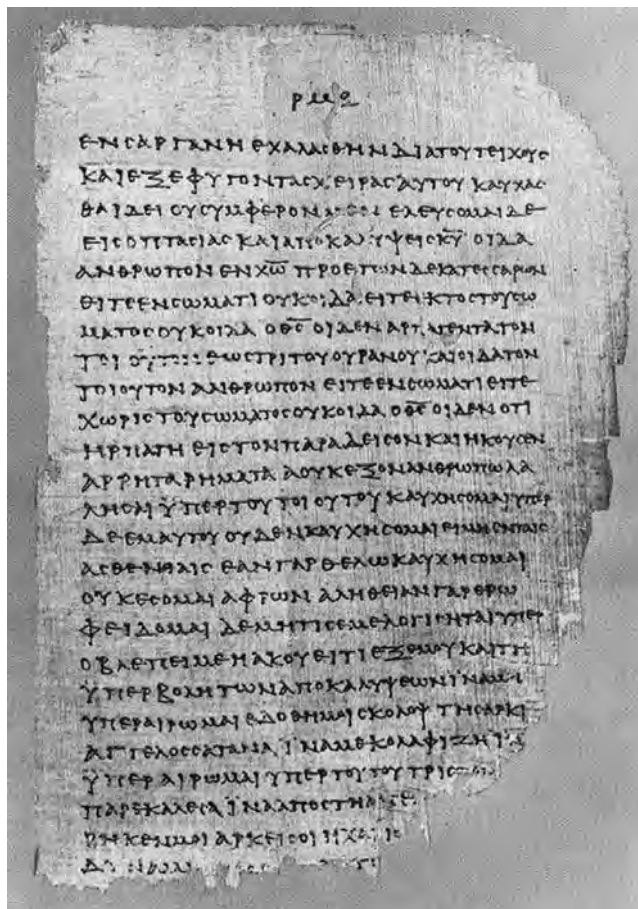 ΕΝ CΑΡΓΑΝΗ ΕΧΑΛΑCΘΗΝ ΔΙΑ ΤΟΥ ΤΕΙΧΟΥC
ΚΑΙ ΕΞΕΦΥΓΟΝ ΤΑC ΧΕΙΡΑC ΑΥΤΟΥ ΚΑΥΧΑC
ΘΑΙ ΔΕΙ ΟΥ CΥΜΦΕΡΟΝ ΕΛΕΥCΟΜΑΙ ΔΕ
ΕΙC ΟΠΤΑCΙΑC ΚΑΙ ΑΠΟΚΑΛΥΨΕΙC Κ̅Υ̅ ΟΙΔΑ
ΑΝΘΡΩΠΟΝ ΕΝ Χ̅Ω̅ ΠΡΟ ΕΤΩΝ ΔΕΚΑΤΕCCΑΡΩΝ
ΕΙΤΕ ΕΝ CΩΜΑΤΙ ΟΥΚ ΟΙΔΑ ΕΙΤΕ ΕΚΤΟC ΤΟΥ CΩ
ΜΑΤΟC ΟΥΚ ΟΙΔΑ Ο Θ̅C̅ ΟΙΔΕΝ ΑΡΠΑΓΕΝΤΑ ΤΟΝ
ΕΩC ΤΡΙΤΟΥ ΟΥΡΑΝΟΥ ΚΑΙ ΟΙΔΑ ΤΟΝ
ΤΟΙΟΥΤΟΝ ΑΝΘΡΩΠΟΝ ΕΙΤΕ ΕΝ CΩΜΑΤΙ ΕΙΤΕ
ΧΩΡΙC ΤΟΥ CΩΜΑΤΟC ΟΥΚ ΟΙΔΑ Ο Θ̅C̅ ΟΙΔΕΝ ΟΤΙ
ΗΡΠΑΓΗ ΕΙC ΤΟΝ ΠΑΡΑΔΕΙCΟΝ ΚΑΙ ΗΚΟΥCΕΝ
ΑΡΡΗΤΑ ΡΗΜΑΤΑ Α ΟΥΚ ΕΞΟΝ ΑΝΘΡΩΠΩ ΛΑ
ΛΗCΑΙ ΫΠΕΡ ΤΟΥ ΤΟΙΟΥΤΟΥ ΚΑΥΧΗCΟΜΑΙ ΥΠΕΡ
ΔΕ ΕΜΑΥΤΟΥ ΟΥΔΕΝ ΚΑΥΧΗCΟΜΑΙ ΕΙ ΜΗ ΕΝ ΤΑΙC
ΑCΘΕΝΗΑΙC ΕΑΝ ΓΑΡ ΘΕΛΩ ΚΑΥΧΗCΟΜΑΙ
ΟΥΚ ΕCΟΜΑΙ ΑΦΡΩΝ ΑΛΗΘΕΙΑΝ ΓΑΡ ΕΡΩ
ΦΕΙΔΟΜΑΙ ΔΕ ΜΗ ΤΙC ΕΜΕ ΛΟΓΙCΗΤΑΙ ΥΠΕΡ
Ο ΒΛΕΠΕΙ ΜΕ Η ΑΚΟΥΕΙ ΤΙ ΕΞ ΕΜΟΥ ΚΑΙ ΤΗ
ΫΠΕΡΒΟΛΗ ΤΩΝ ΑΠΟΚΑΛΥΨΕΩΝ ΪΝΑ ΜΗ
ΥΠΕΡΑΙΡΩΜΑΙ ΕΔΟΘΗ ΜΟΙ CΚΟΛΟΨ ΤΗ CΑΡΚΙ
ΑΓΓΕΛΟC CΑΤΑΝΑ ΪΝΑ ΜΕ ΚΟΛΑΦΙΖΗ ΪΝΑ
ΫΠΕΡΑΙΡΩΜΑΙ ΥΠΕΡ ΤΟΥΤΟΥ ΤΡΙC
ΠΑΡΕΚΑΛΕCΑ ΪΝΑ ΑΠΟCΤΗ
ΡΗΚΕΝ ΜΟΙ ΑΡΚΕΙ CΟΙ Η